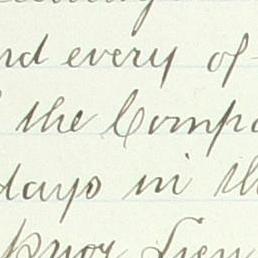 nd every of
the Compa
days in th
prior Lien